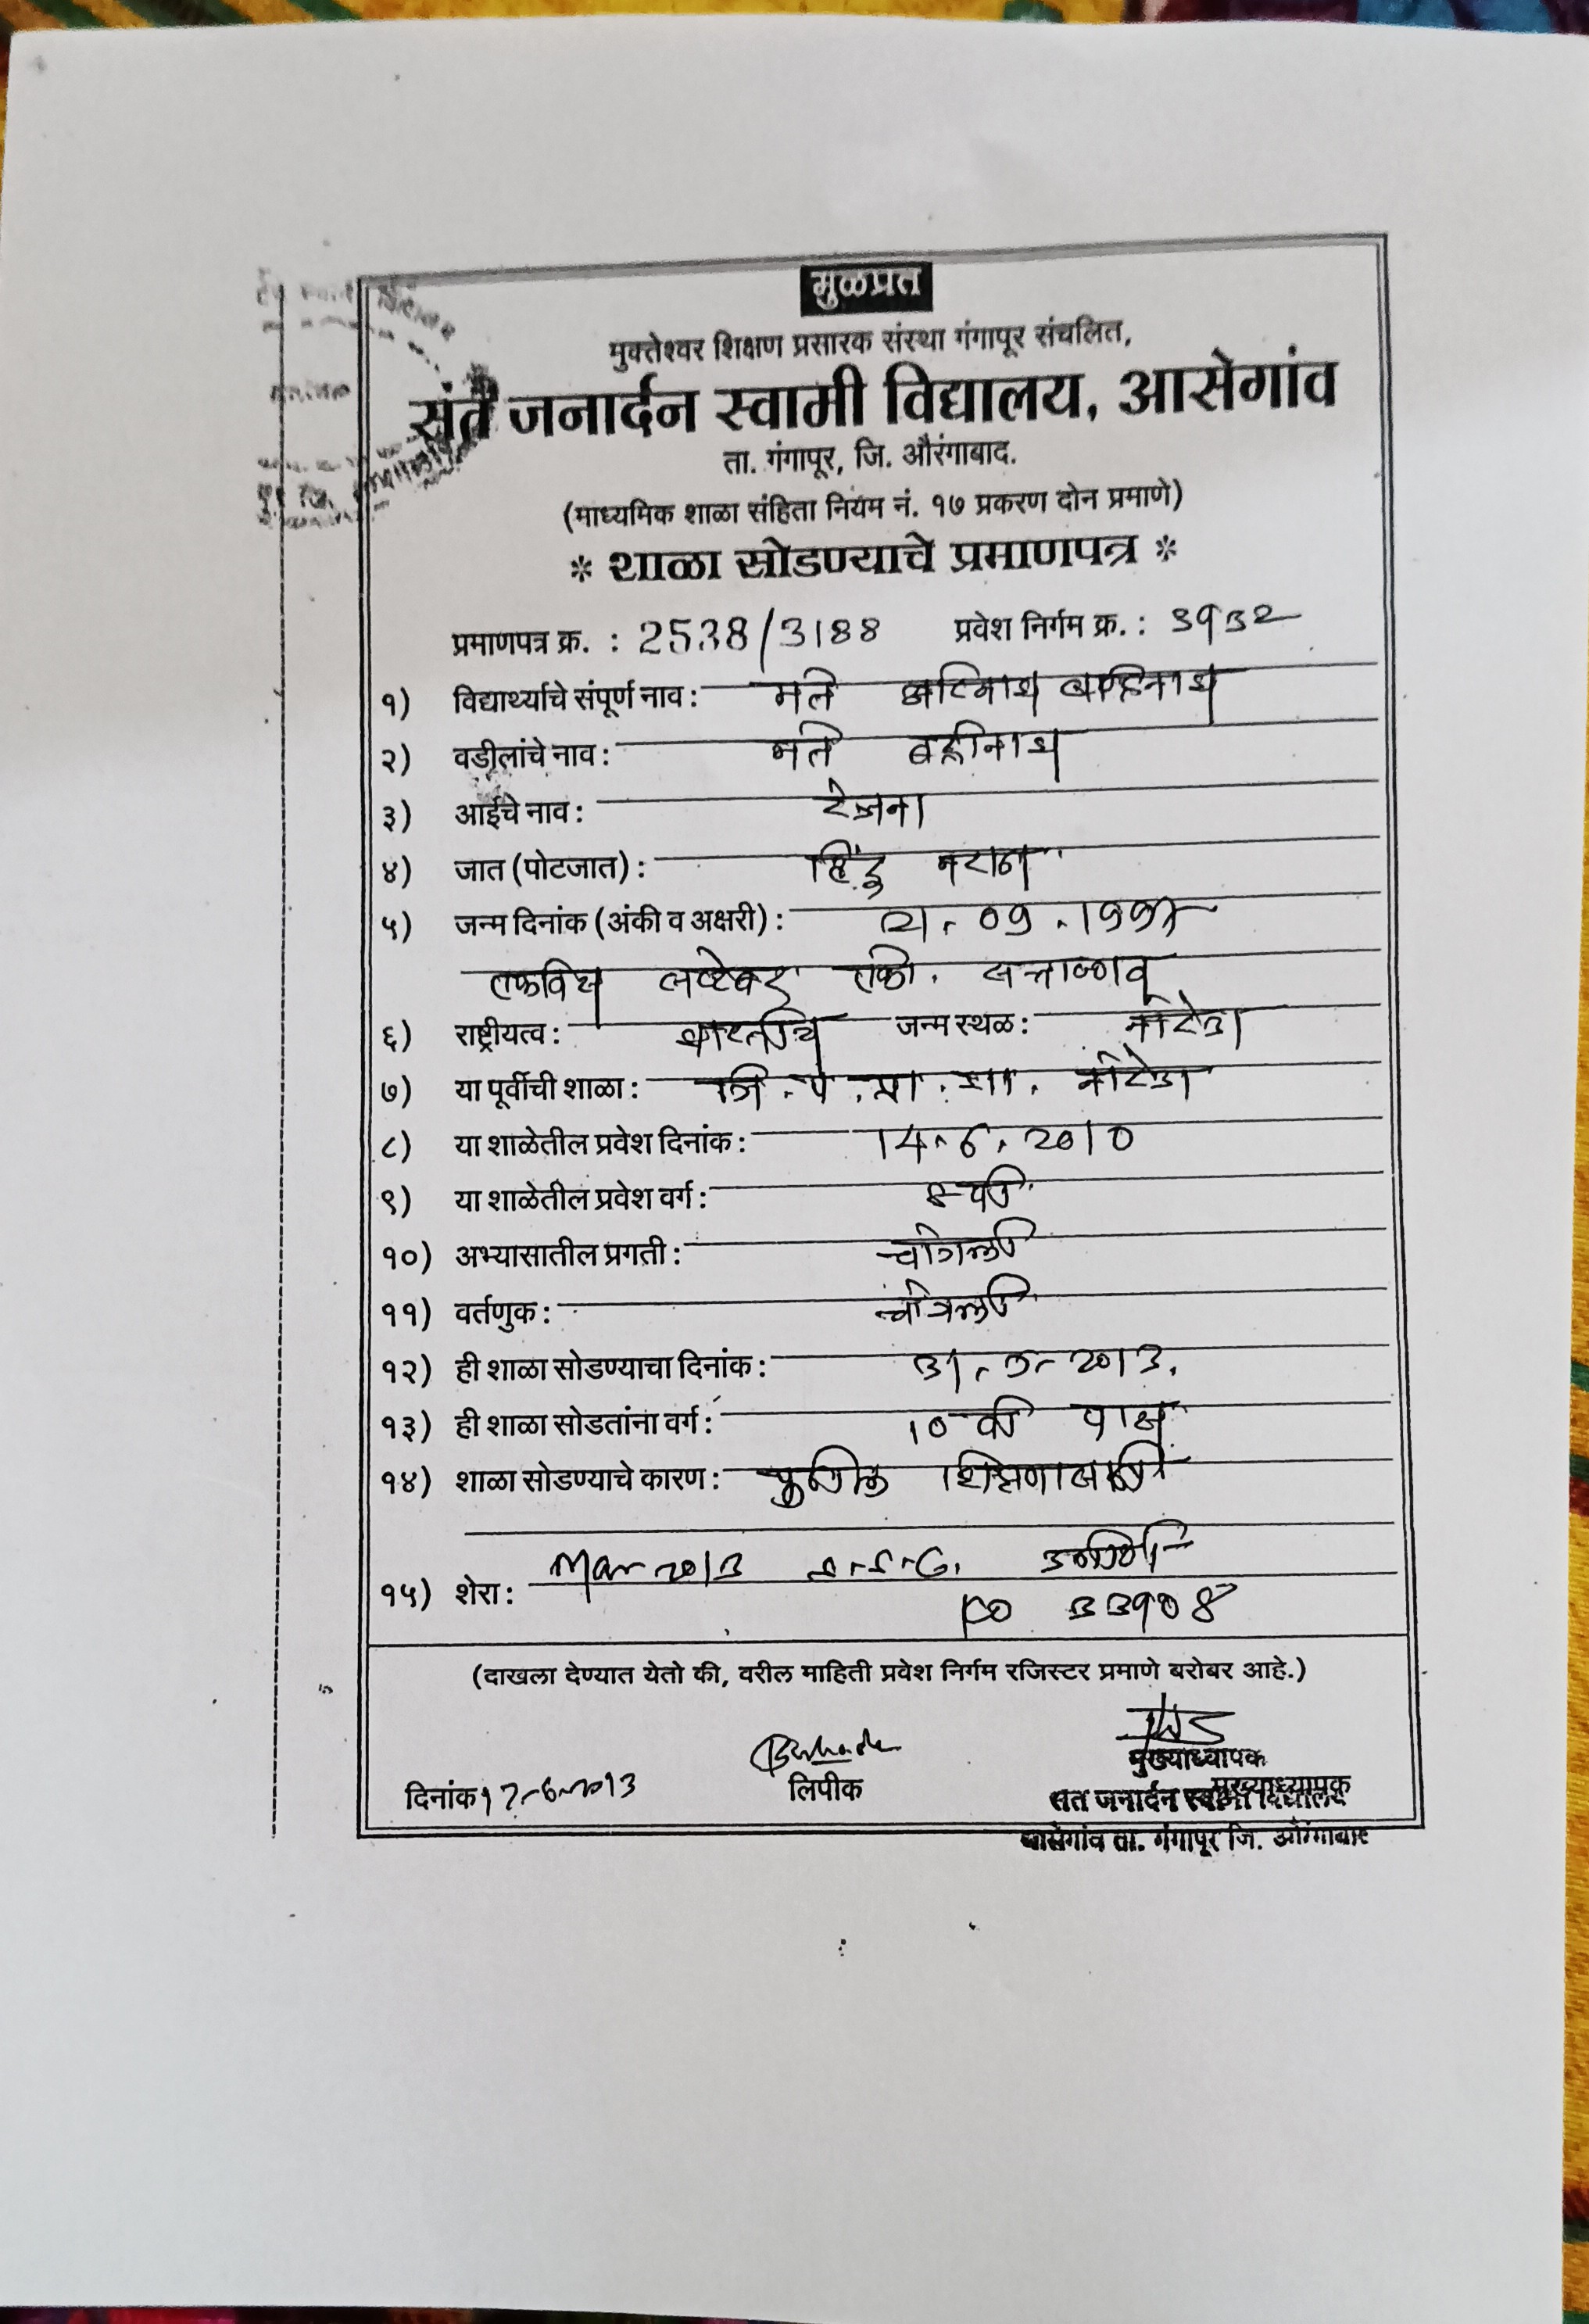 मुळप्रत
मुक्तेश्वर शिक्षण प्रसारक संस्था गंगापूर संचलित,
संत जनार्दन स्वामी विद्यालय, आसेगांव
ता. गंगापूर, जि. औरंगाबाद.
(माध्यमिक शाळा संहिता नियम नं. १७ प्रकरण दोन प्रमाणे)
* शाळा सोडण्याचे प्रमाणपत्र *
प्रमाणपत्र क्र. : 2538/3188 प्रवेश निर्गम क्र. : 3932
१) विद्यार्थ्याचे संपूर्ण नाव : मते
२) वडीलांचे नाव : मते बद्रीनाथ
३) आईचे नाव : रंजना
४) जात (पोटजात) : हिंदु मराठा
५) जन्म दिनांक (अंकी व अक्षरी) : 21.09.1997
एकविस सप्टेंबर एको. सत्याण्णव
६) राष्ट्रीयत्व : भारतीय जन्म स्थळ :
७) या पूर्वीची शाळा : जि.प.प्रा.शा.
८) या शाळेतील प्रवेश दिनांक : 14.6.2010
९) या शाळेतील प्रवेश वर्ग : ८ वी
१०) अभ्यासातील प्रगती : चांगली
११) वर्तणुक : चांगली
१२) ही शाळा सोडण्याचा दिनांक : 31-5-2013.
१३) ही शाळा सोडतांना वर्ग : 10 वी पास
१४) शाळा सोडण्याचे कारण : पुढील शिक्षणासाठी
Mar 2013 S.S.C. उत्तीर्ण
१५) शेरा :
(दाखला देण्यात येतो की, वरील माहिती प्रवेश निर्गम रजिस्टर प्रमाणे बरोबर आहे.)
दिनांक 17-6-2013 लिपीक मुख्याध्यापक
मुख्याध्यापक
संत जनार्दन स्वामी विद्यालय
आसेगांव ता. गंगापूर जि. औरंगाबाद